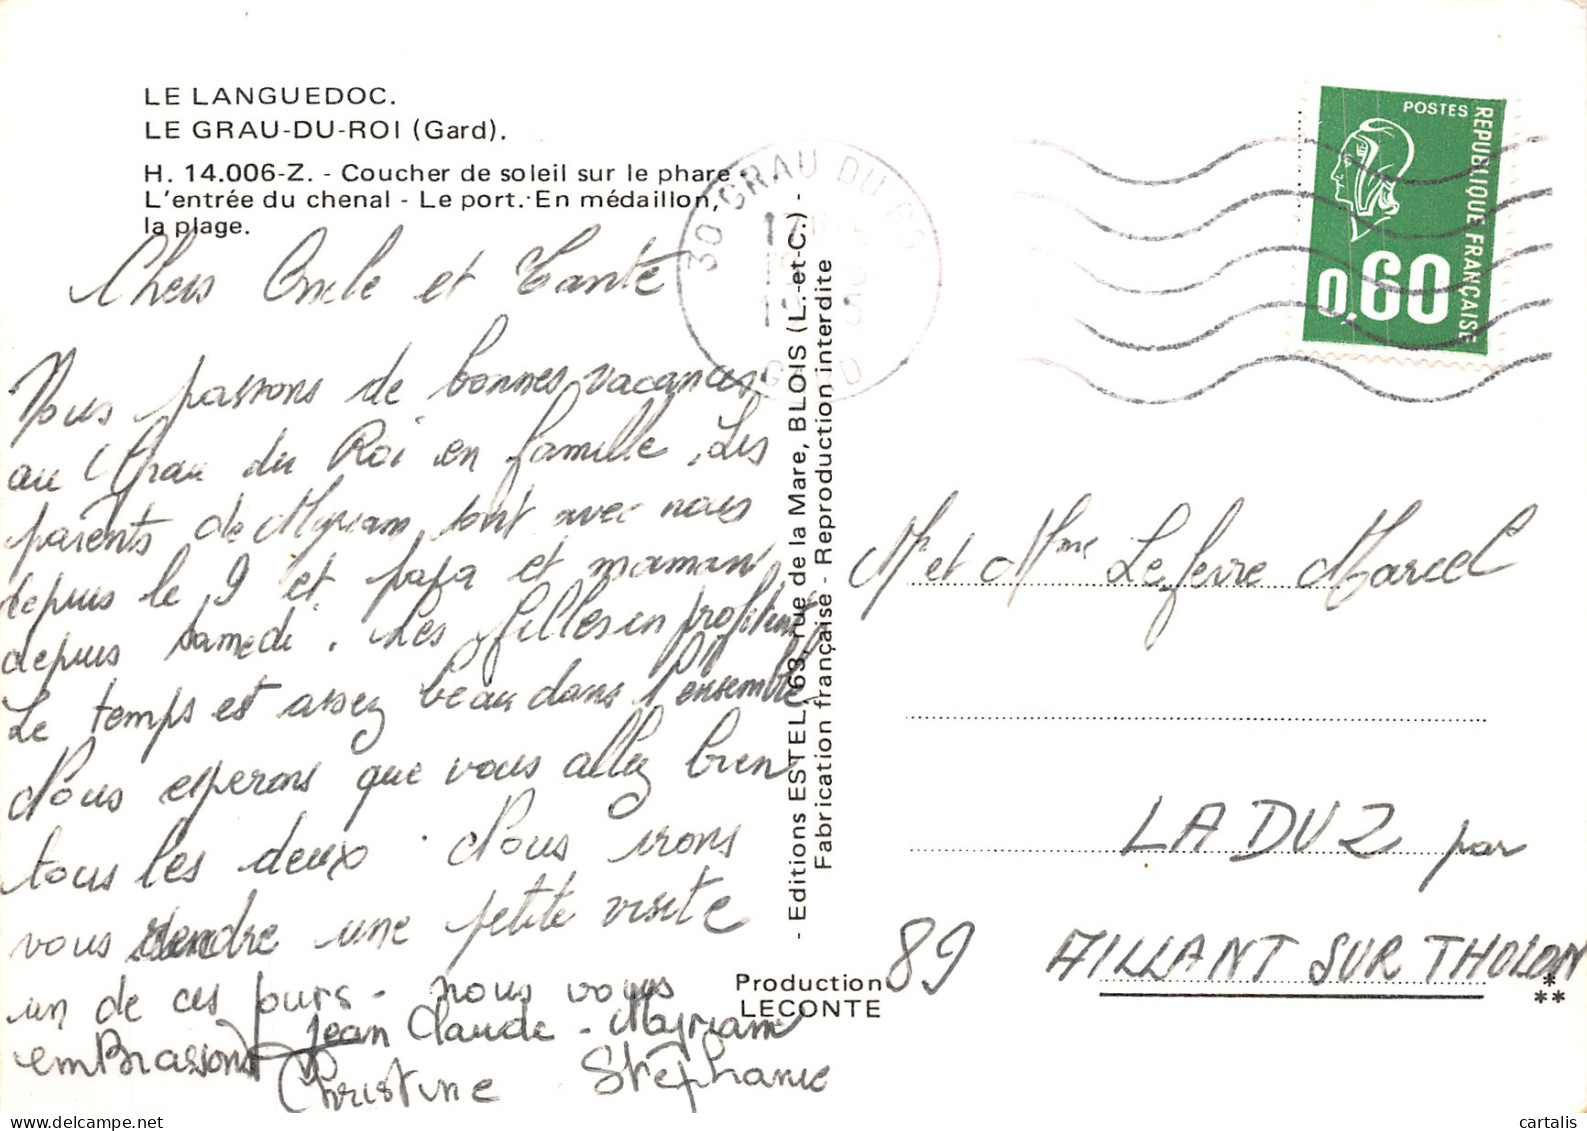 LE LANGUEDOC.
LE GRAU-DU-ROI (Gard).
H. 14.006-Z. - Coucher de soleil sur le phare -
L'entrée du chenal - Le port. - En médaillon,
la plage.
Chers Oncle et Tante
Nous passons de bonnes vacances
au Grau du Roi en famille. Les
parents de Myriam sont avec nous
depuis le 9 et papa et maman
depuis samedi. Les filles en profitent
Le temps est assez beau dans l'ensemble
Nous esperons que vous allez bien
tous les deux. Nous irons
vous rendre une petite visite
un de ces jours - nous vous
embrassons Jean Claude - Myriam
Christine Stéphanie
- Editions ESTEL, 63, rue de la Mare, BLOIS (L.-et-C.) -
Fabrication française - Reproduction interdite
Production
LECONTE
30 GRAU DU ROI
GARD
POSTES
REPUBLIQUE FRANÇAISE
0,60
Mr et Mme Lefevre Marcel
LADUZ par
89 AILLANT SUR THOLON
*
**
cartalis